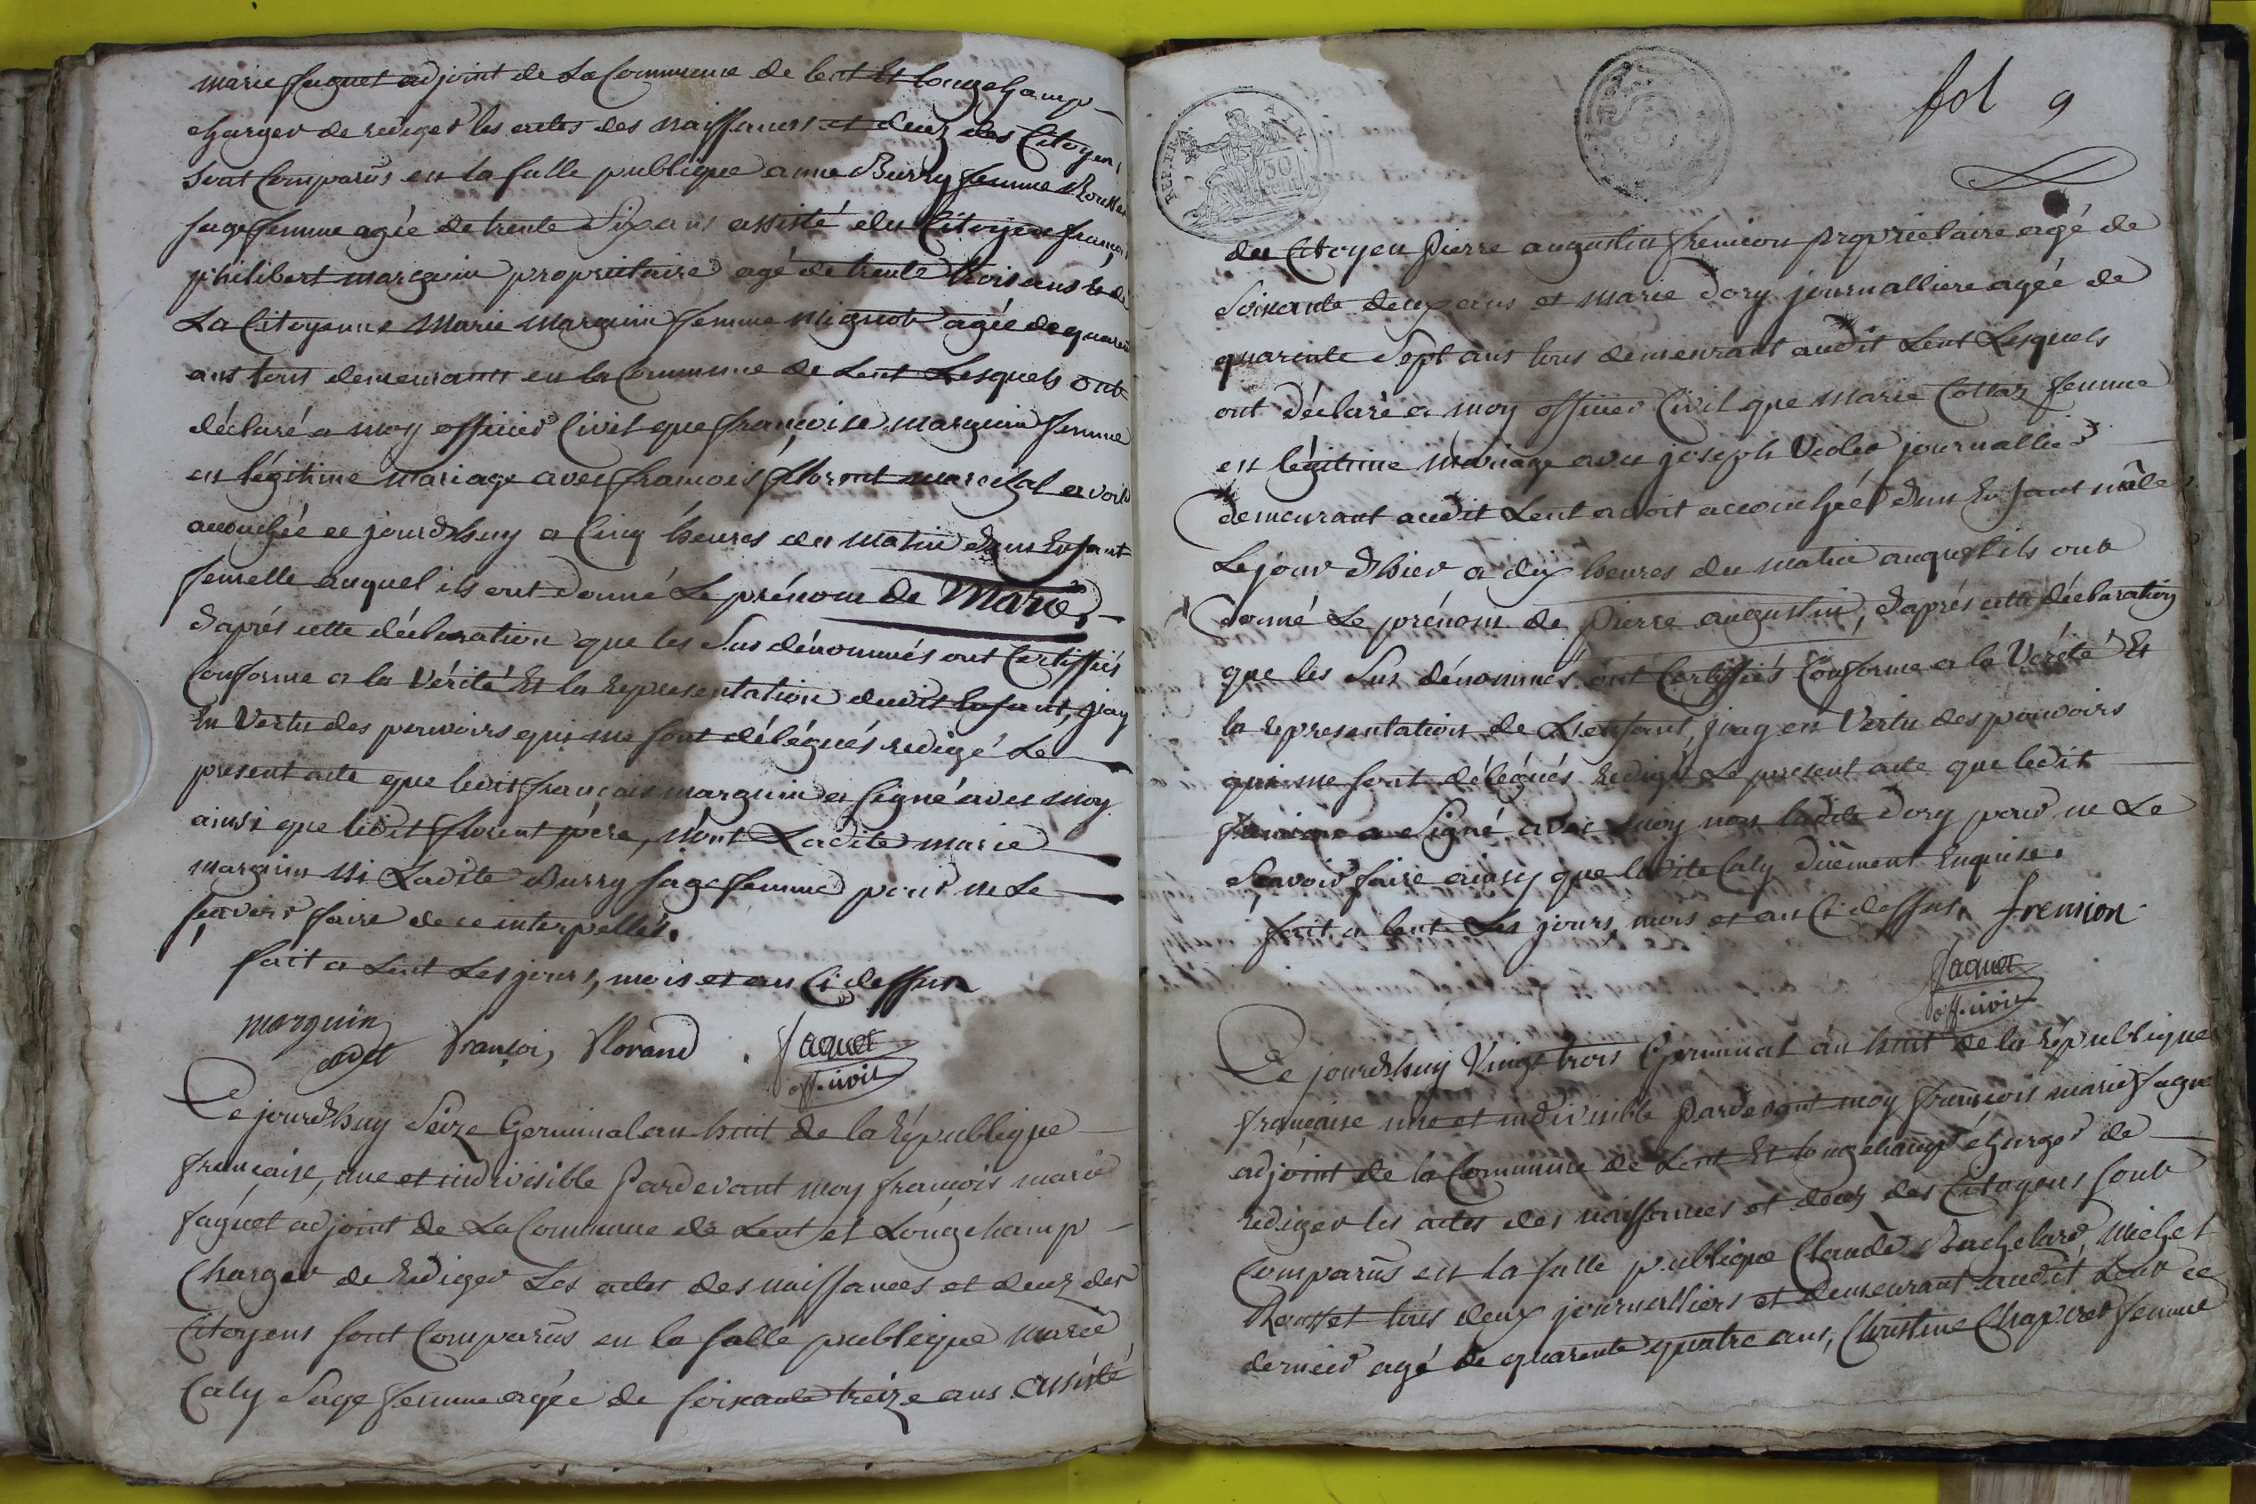 marie faguet adjoint de La Commune de lent Et longchamp
charger de rediger les actes des naissances et decez des Citoyens
sont Comparûs en la salle publique anne Burry femme
sage femme agée de trente Six ans assisté du Citoyen françois
philibert marguin propriétaire agé de trente trois ans Et de
La Citoyenne Marie Marguin femme mignot agée de quarente
ans tous demeurants en la Commune de Lent Lesquels ont
déclaré a moy officier Civil que françoise marguin femme
en légitime mariage avec françois florent marechal avoit
accouchée ce jourdhuy a Cinq heures du matin dun Enfant
femelle auquel ils ont donné Le prénom de Marie,
daprés cette déclaration que les Sus dénommés ont Certiffiés
Conforme a la Vérité Et la representation dudit Enfant, jay
En Vertu des pouvoirs qui me sont délégués redigé Le
present acte que ledit françois marguin a signé avec moy
ainsi que ledit florent pére, nont Ladite marie
marguin Ni Ladite Burry sage femme pour ne Le
sçavoir faire de ce interpellés.
fait a Lent Les jours, mois et an Ci dessus
marguin françois florand . faguet
adjt off. civil
Ce jourdhuy Seize Germinal an huit de la République
française, une et indivisible Pardevant moy françois marie
faguet adjoint de La Commune de Lent et Longchamp
Charger de Rediger Les actes des naissances et decez des
Citoyens sont Comparûs en la salle publique marie
Caly Sage femme agée de soixante treize ans assisté
fol 9
REP. FRA
50
du Citoyen Pierre augustin fremion propriétaire agé de
Soixante deux ans et marie dory journalliere agée de
quarente Sept ans tous demeurant audit Lent Lesquels
ont déclaré a moy officier Civil que marie Collaz femme
en légitime mariage avec joseph Violet journallier
demeurant audit Lent avoit accouchée dun Enfant mâle
Le jour dhier a dix heures du matin auquel ils ont
donné Le prénom de Pierre augustin, daprés cette déclaration
que les Sus dénommés ont Certiffiés Conforme a la Vérité Et
la representation de Lenfant, jay en Vertu des pouvoirs
qui me sont délégués Redigé Le present acte que ledit
fremion a Signé avec moy non ladite dory pour ne Le
Sçavoir faire ainsy que ladite Caly duëment Enquise.
fait a lent Les jours, mois et an Ci dessus. fremion
faguet
off. civil
Ce jourdhuy Vingt trois Germinal an huit de la République
française une et indivisible Pardevant moy françois marie faguet
adjoint de la Commune de Lent Et longchamp charger de
rediger les actes des naissances et decez des Citoyens sont
Comparûs en la salle publique Claude Bachelard, michel
Rousset tous deux journalliers et demeurant audit Lent ce
dernier agé de quarente quatre ans, Christine Chapuis femme